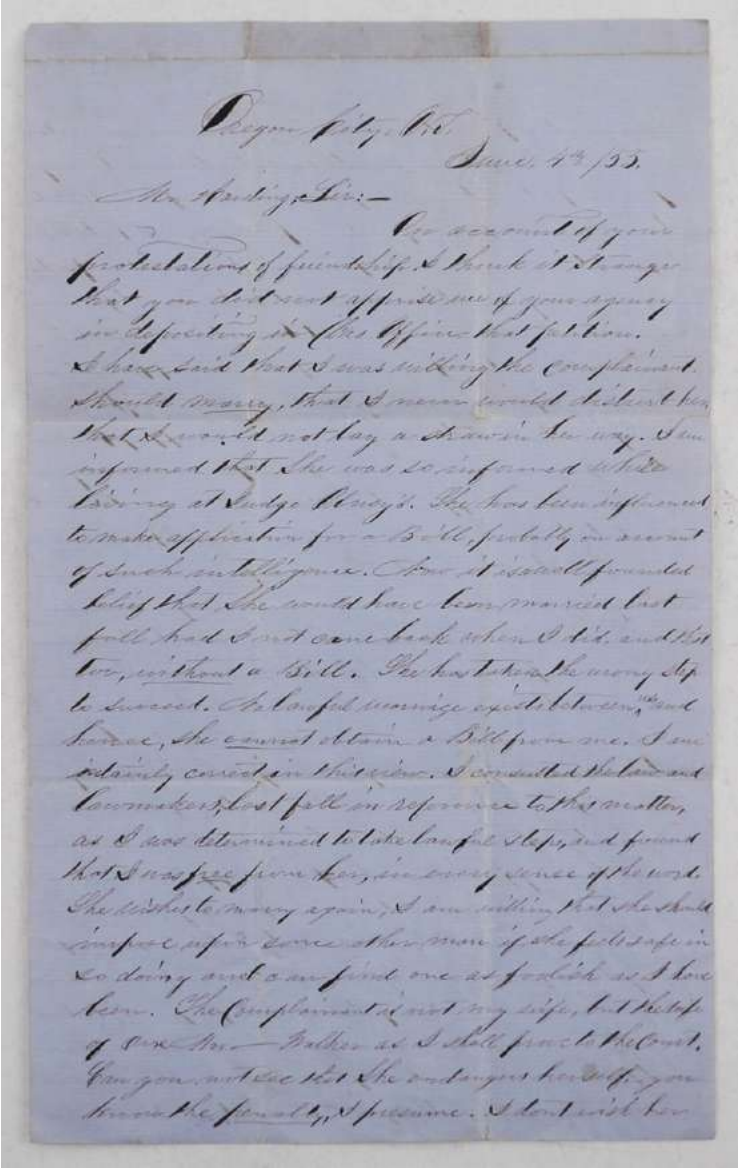 Oregon City, O.T.
June, 4th /55.
Mr. Harding, Sir:—
On account of your
protestations of friendship. I think it strange
that you did not apprise me of your agency
in depositing in Office that petition.
I have said that I was willing the complainant
should marry, that I never would disturb her,
that I would not lay a straw in her way. I am
informed that she was so informed while
living at Judge Olney's. She has been influenced
to make application for a Bill, probably on account
of such intelligence. Now it is a well founded
belief that she would have been married last
fall had I not come back when I did. and that
too, without a Bill. She has taken the wrong step
to succeed. No lawful marriage exists between us and
hence, she cannot obtain a Bill from me. I am
certainly correct in this view. I consulted the law and
lawmakers, last fall in reference to this matter,
as I was determined to take lawful steps, and found
that I was free from her, in every sense of the word.
She wishes to marry again, I am willing that she should
impose upon some other man if she feels safe in
so doing and can find one as foolish as I have
been. The Complainant is not my wife, but the wife
of one Mr — Walker as I shall prove to the Court.
Can you not see that she endangers herself, you
know the penalty, I presume. I dont wish her